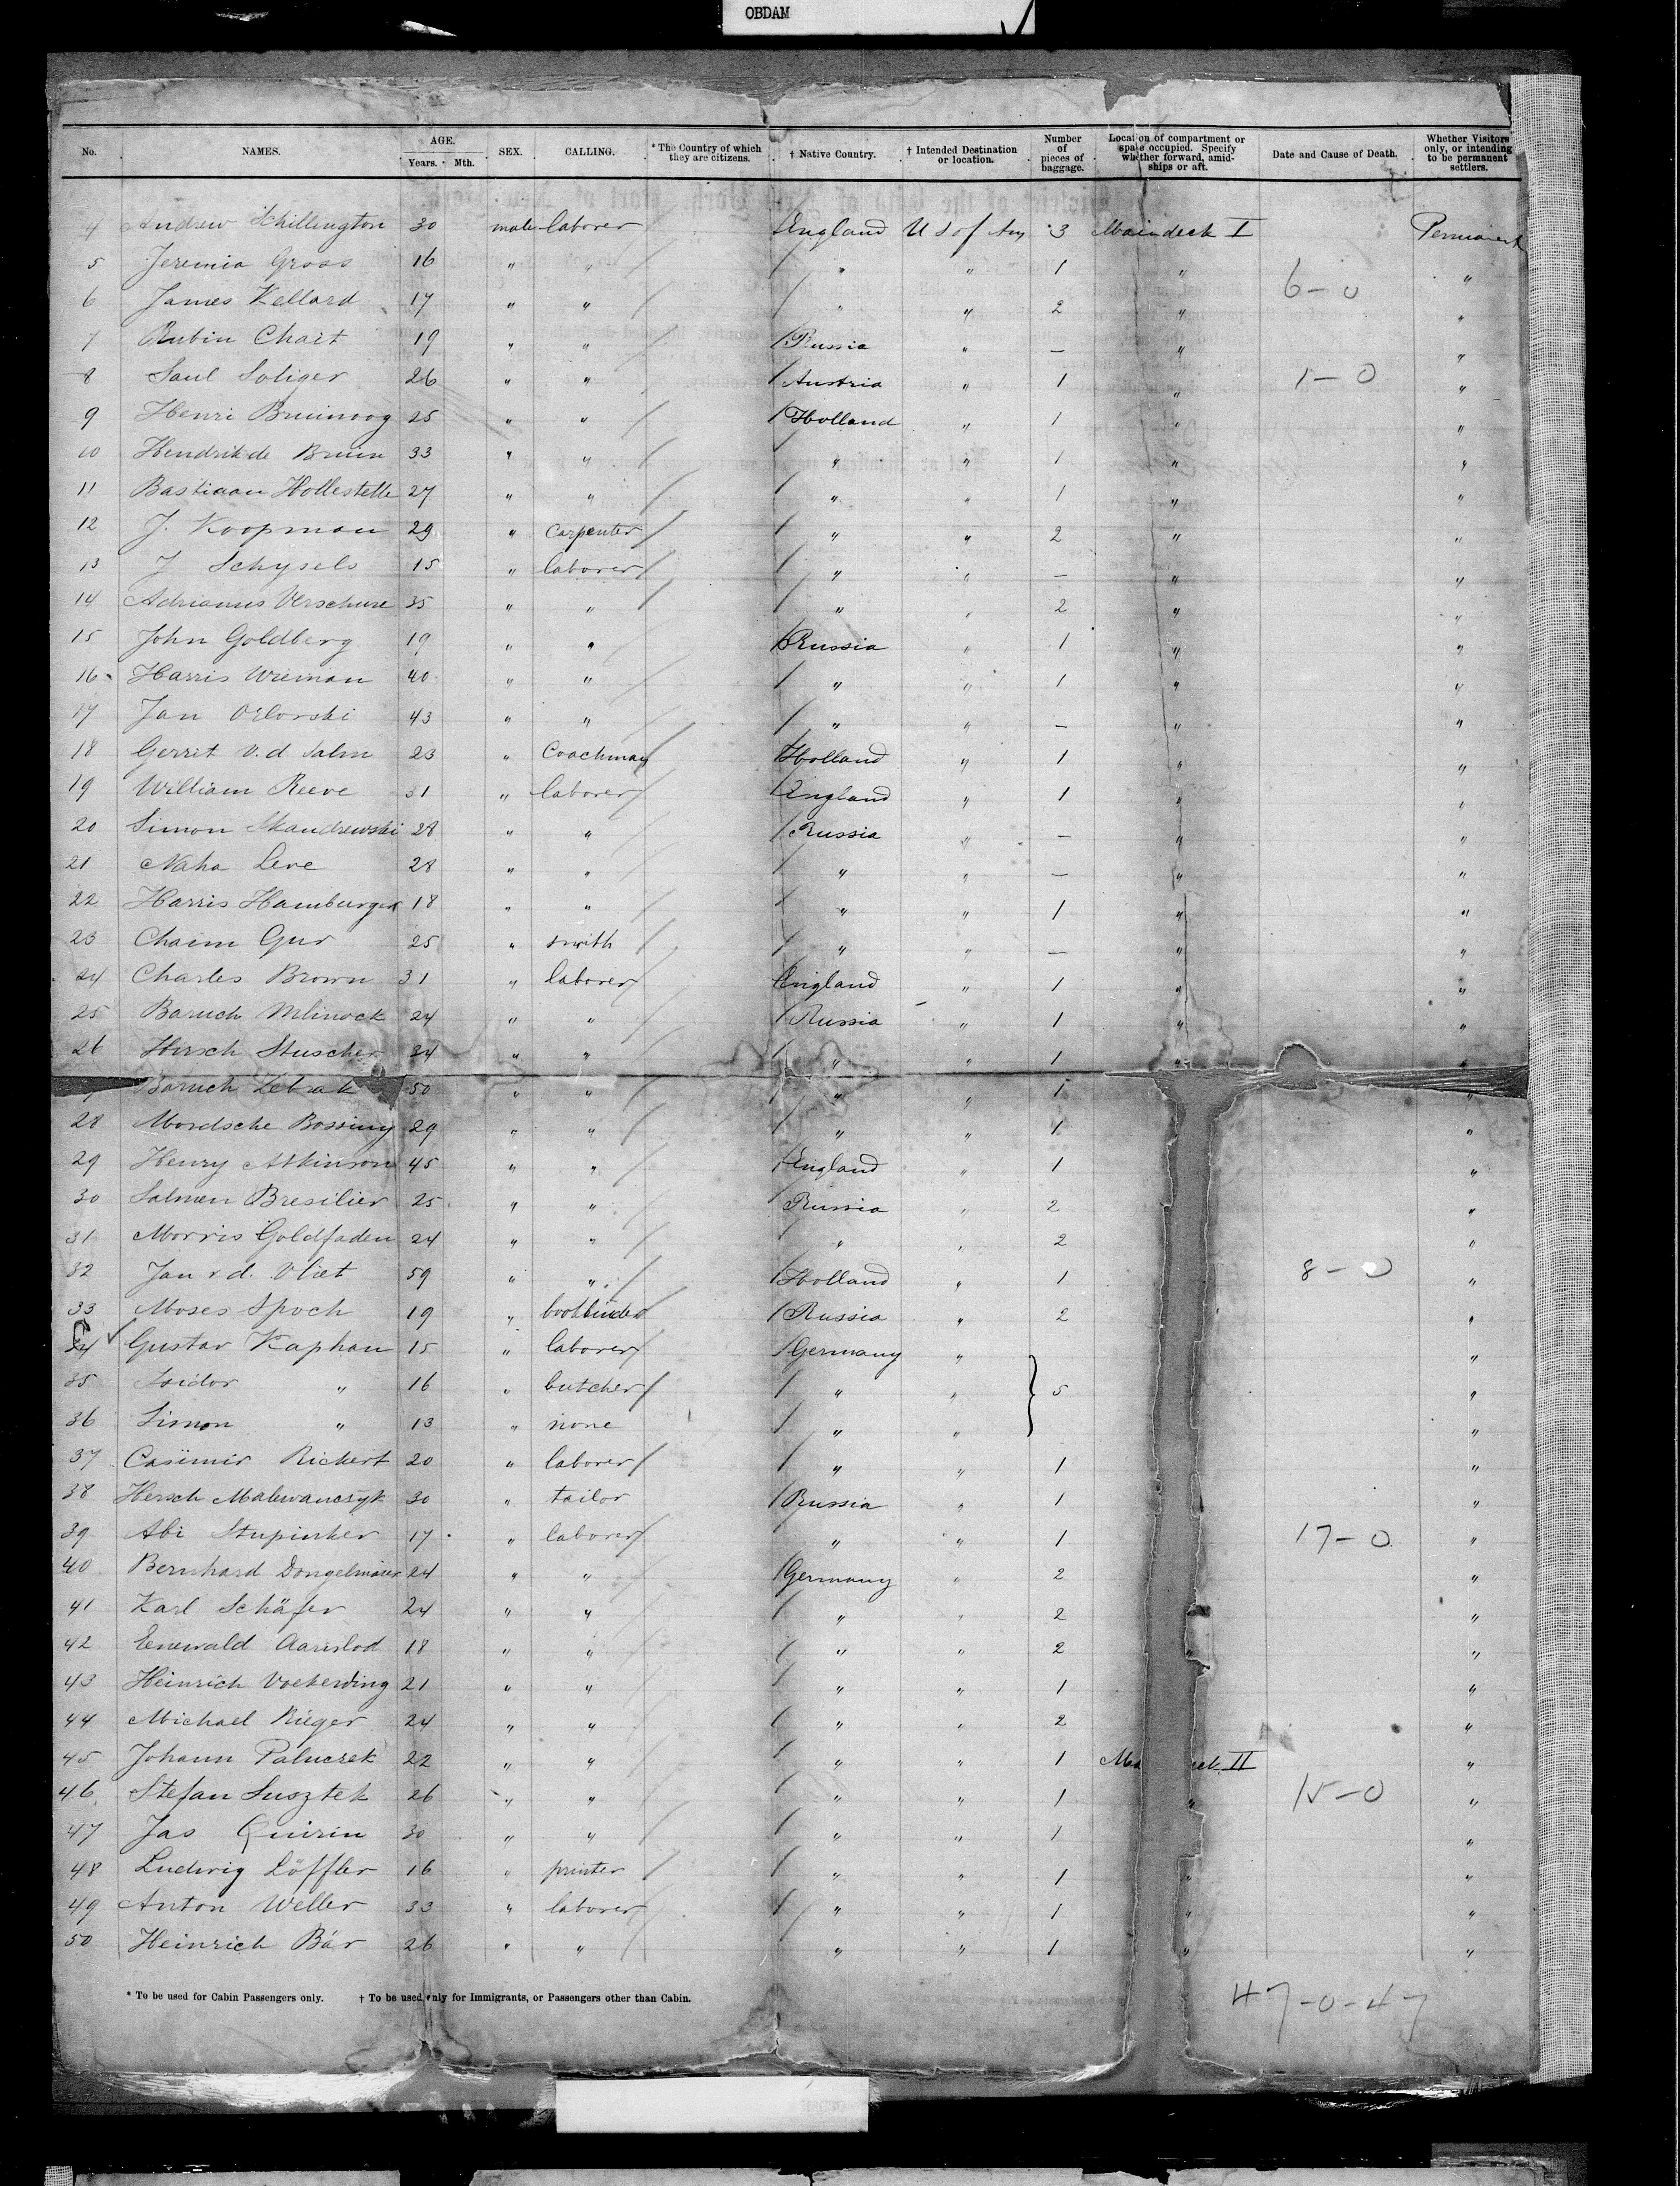 OBDAM
No. NAMES. AGE. Years. Mth. SEX. CALLING. * The Country of which they are citizens. † Native Country. † Intended Destination or location. Number of pieces of baggage. Location of compartment or space occupied. Specify whether forward, amidships or aft. Date and Cause of Death. Whether Visitors only, or intending to be permanent settlers.
4 Andrew Schillington 30 male laborer England U S of Am 3 Maindeck I Permanent
5 Jeremia Gross 16 " " " " 1 " "
6-0
6 James Kellard 17 " " " " 2 " "
7 Rubin Chait 19 " " Russia " — " "
8 Saul Soliger 26 " " Austria " 1 " 1-0 "
9 Henri Bruinoog 25 " " Holland " 1 " "
10 Hendrik de Bruin 33 " " " " 1 " "
11 Bastiaan Hollestelle 27 " " " " 1 " "
12 J. Koopman 29 " carpenter " " 2 " "
13 J Schysels 15 " laborer " " — " "
14 Adrianus Verschure 35 " " " " 2 " "
15 John Goldberg 19 " " Russia " 1 " "
16 Harris Wieman 40 " " " " 1 " "
17 Jan Orlovski 43 " " " " — " "
18 Gerrit v. d Salm 23 " Coachman Holland " 1 " "
19 William Reeve 31 " laborer England " 1 " "
20 Simon Skandrewski 28 " " Russia " — " "
21 Naha Leve 28 " " " " — " "
22 Harris Hamburger 18 " " " " 1 " "
23 Chaim Gur 25 " smith " " — " "
24 Charles Brown 31 " laborer England " 1 " "
25 Baruch Mlinock 24 " " Russia " 1 " "
26 Hirsch Stuscher 34 " " " " 1 " "
Baruch Zebrak 50 " " " " 1 "
28 Mordsche Bossiny 29 " " " " 1 "
29 Henry Atkinson 45 " " England " 1 "
30 Salmen Bresilier 25 " " Russia " 2 "
31 Morris Goldfaden 24 " " " " 2 "
32 Jan v. d. Vliet 59 " " Holland " 1 8-0 "
33 Moses Spoch 19 " bookbinder Russia " 2 "
34 Gustav Kaphan 15 " laborer Germany " "
35 Isidor " 16 " butcher " " 5 "
36 Simon " 13 " none " " "
37 Casimir Rickert 20 " laborer " " 1 "
38 Hersch Malewanczyk 30 " tailor Russia " 1 "
39 Abi Stupinker 17 " laborer " " 1 17-0 "
40 Bernhard Dongelmaier 24 " " Germany " 2 "
41 Karl Schäfer 24 " " " " 2 "
42 Enewald Aarislod 18 " " " " 2 " "
43 Heinrich Vockerding 21 " " " " 1 "
44 Michael Rüger 24 " " " " 2 "
45 Johann Paluczek 22 " " " " 1 Ma eck II "
46 Stefan Susztek 26 " " " " 1 " 15-0 "
47 Jas Quirin 30 " " " " 1 "
48 Ludwig Löffler 16 " printer " " 1 " "
49 Anton Weller 33 " laborer " " 1 " "
50 Heinrich Bär 26 " " " " 1 " "
* To be used for Cabin Passengers only. † To be used only for Immigrants, or Passengers other than Cabin.
47-0-47